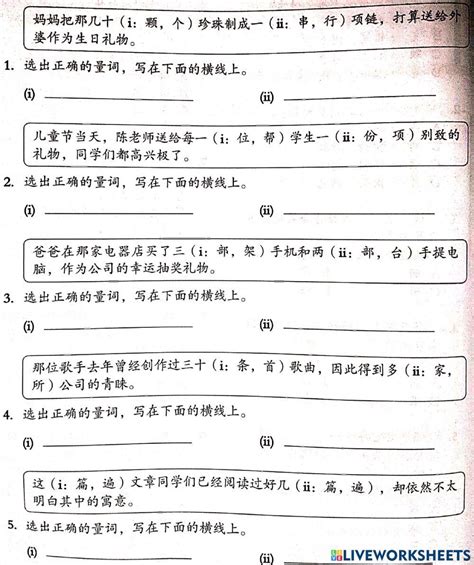 妈妈把那几十（i：颗，个）珍珠制成一（ii：串，行）项链，打算送给外
婆作为生日礼物。
1. 选出正确的量词，写在下面的横线上。
(i) (ii)
儿童节当天，陈老师送给每一（i：位，帮）学生一（ii：份，项）别致的
礼物，同学们都高兴极了。
2. 选出正确的量词，写在下面的横线上。
(i) (ii)
爸爸在那家电器店买了三（i：部，架）手机和两（ii：部，台）手提电
脑，作为公司的幸运抽奖礼物。
3. 选出正确的量词，写在下面的横线上。
(i) (ii)
那位歌手去年曾经创作过三十（i：条，首）歌曲，因此得到多（ii：家，
所）公司的青睐。
4. 选出正确的量词，写在下面的横线上。
(i) (ii)
这（i：篇，遍）文章同学们已经阅读过好几（ii：篇，遍），却依然不太
明白其中的寓意。
5. 选出正确的量词，写在下面的横线上。
(i) (ii)
LIVEWORKSHEETS